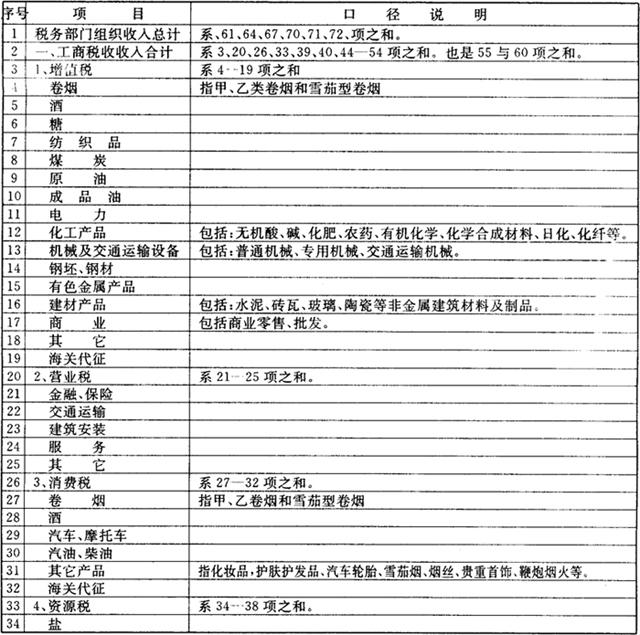 序号 项 目 口 径 说 明
1 税务部门组织收入总计 系、61、64、67、70、71、72、项之和。
2 一、工商税收收入合计 系 3、20、26、33、39、40、44—54 项之和。也是 55 与 60 项之和。
3 1、增值税 系 4—19 项之和
4 卷烟 指甲、乙类卷烟和雪茄型卷烟
5 酒
6 糖
7 纺织品
8 煤 炭
9 原 油
10 成 品 油
11 电 力
12 化工产品 包括:无机酸、碱、化肥、农药、有机化学、化学合成材料、日化、化纤等。
13 机械及交通运输设备 包括:普通机械、专用机械、交通运输机械。
14 钢坯、钢材
15 有色金属产品
16 建材产品 包括:水泥、砖瓦、玻璃、陶瓷等非金属建筑材料及制品。
17 商 业 包括商业零售、批发。
18 其 它
19 海关代征
20 2、营业税 系 21—25 项之和。
21 金融、保险
22 交通运输
23 建筑安装
24 服 务
25 其 它
26 3、消费税 系 27—32 项之和。
27 卷 烟 指甲、乙卷烟和雪茄型卷烟
28 酒
29 汽车、摩托车
30 汽油、柴油
31 其它产品 指化妆品,护肤护发品、汽车轮胎、雪茄烟、烟丝、贵重首饰、鞭炮烟火等。
32 海关代征
33 4、资源税 系 34—38 项之和。
34 盐